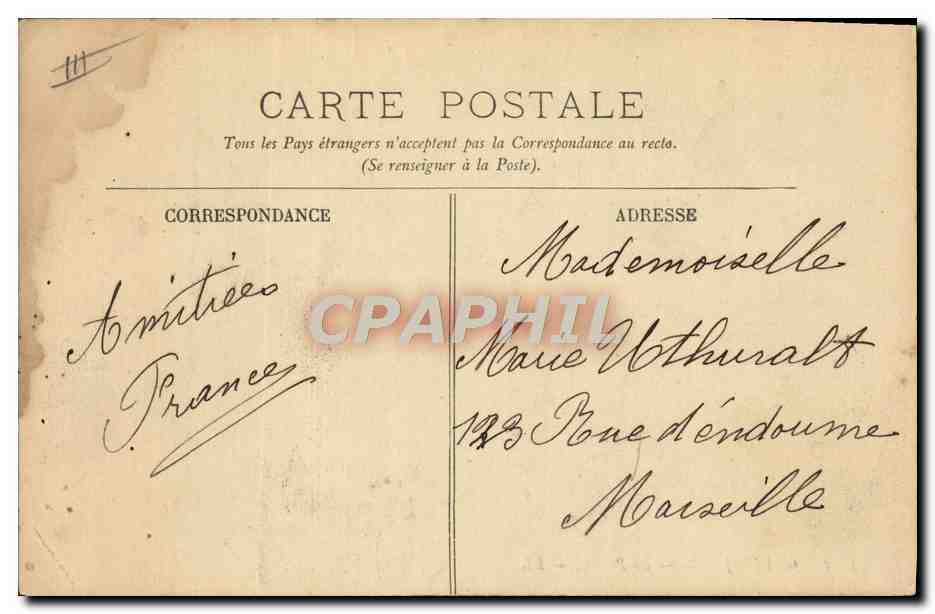 III
CARTE POSTALE
Tous les Pays étrangers n'acceptent pas la Correspondance au recto.
(Se renseigner à la Poste).
CORRESPONDANCE
ADRESSE
Amitiées
France
CPAPHIL
Mademoiselle
Marie Uthuralt
123 Rue d'éndoume
Marseille